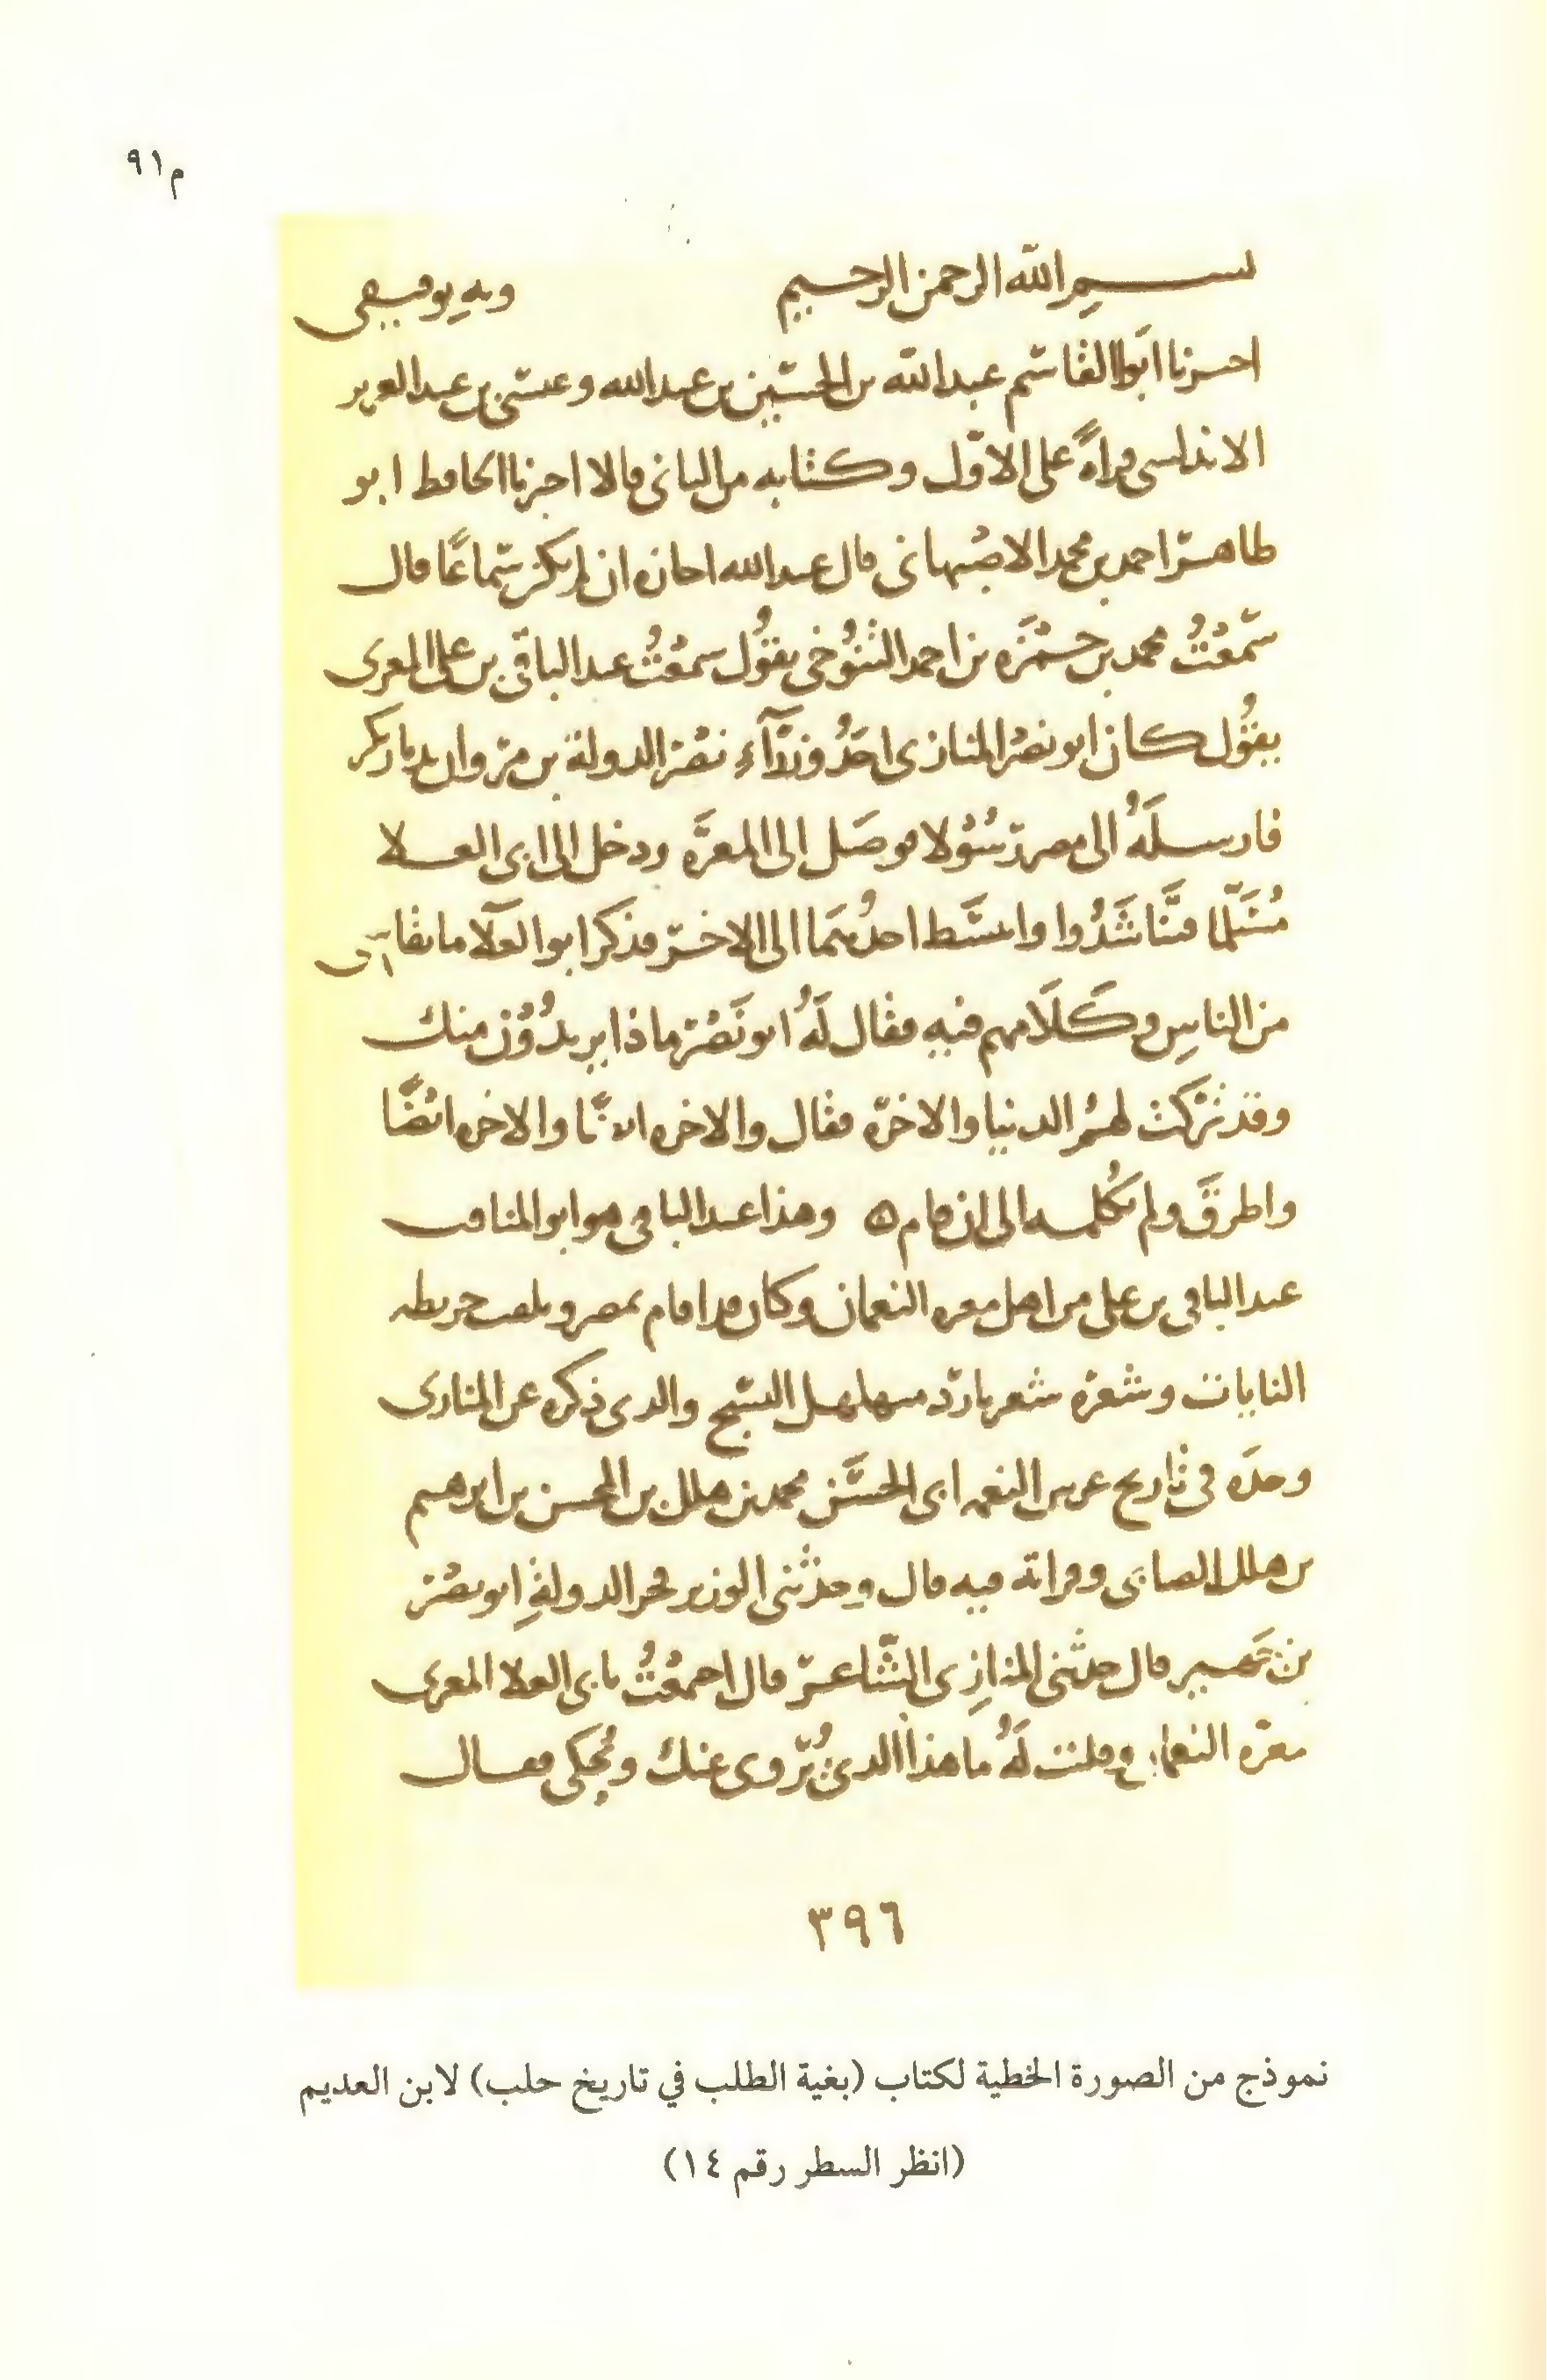 م٩١
بسم الله الرحمن الرحيم وبه توفيقي
اخبرنا ابو القاسم عبد الله بن الحسين بن عبد الله وعيسى بن عبد العزيز
الاندلسي قراءةً على الاول وكتابه من الثاني قالا اخبرنا الحافظ ابو
طاهر احمد بن محمد الاصبهاني قال عبد الله اجازه ان لم يكن سماعًا قال
سمعتُ محمد بن حمزه بن احمد التنوخي يقول سمعتُ عبد الباقي بن علي المعري
يقول كان ابو نصر المنازي احدُ وزرآءِ نصر الدولة بن مروان بديار بكر
فارسلَهُ الى مصر رسُولا فوصل الى المعرَّه ودخل الى ابي العلا
مُسَلّما فتناشَدُوا وانبسَط احدُهما الى الاخر فذكر ابو العلآ ما يقاسى
من الناسِ وكلامهم فيه فقال لَهُ ابو نَصْر ماذا يريدُوْن منك
وقد تركت لهمُ الدنيا والاخره فقال والاخره ايضًا والاخره ايضًا
واطرقَ ولم يُكلمه الى ان قام ه وهذا عبد الباقي هو ابو المناقب
عبد الباقي بن علي من اهل معره النعمان وكان قد اقام بمصر ويلقب خريطه
النايات وشعره شعر بارد مهلهل النسج والذي ذكره عن المنازي
وجدَه في تاريخ غرس النعمه ابي الحسَن محمد بن هلال بن المحسن بن ابرهيم
بن هلال الصابي وقراته فيه قال وحدثني الوزير فخر الدولةِ ابو نصْر
بن جَهير قال حدثني المنازِي الشاعر قال اجتمعْتُ بابي العلا المعري
بمعرّه النعمان وقلت لَهُ ما هذا الذي يُرْوى عنك ويُحكى فقال
٣٩٦
نموذج من الصورة الخطية لكتاب (بغية الطلب في تاريخ حلب) لابن العديم
(انظر السطر رقم ١٤)